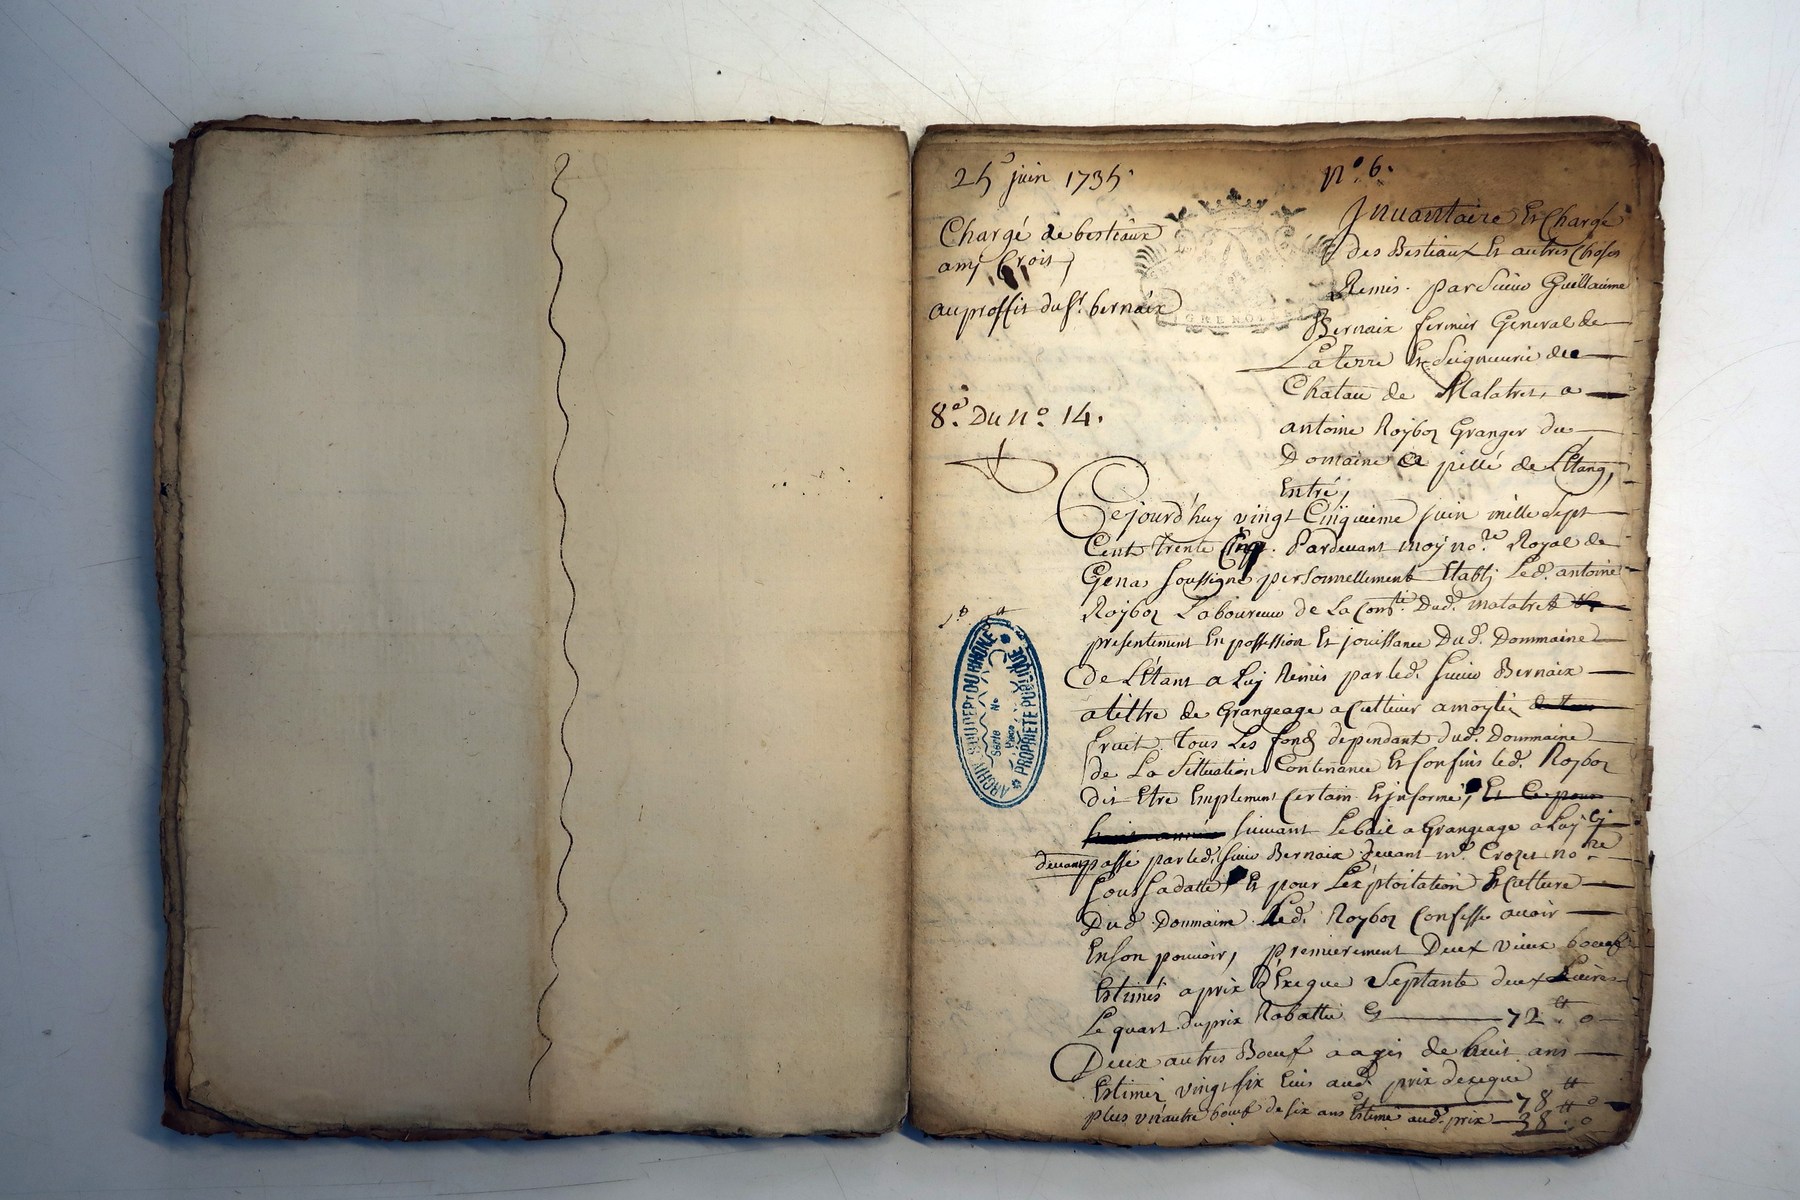 25 juin 1735.
n.º 6.
Chargé de bestiaux
Crois
au proffit du Sr. bernaix
8.e Du n.º 14.
GRENOBLE
Inuantaire Et Charge
des Bestiaux Et autres Choses
Remis par Sieur Guillaume
Bernaix fermier General de
La terre Et Seigneurie de
Chatau de Malatret, a
antoine Roybon Granger du
Domaine de L'Etang,
Entré,
Cejourd'huy vingt Cinquieme juin mille Sept
Cent trente Cinq. Pardeuant moy no.re Royal de
Genas soussigné personnellement Etably Led. antoine
Roybon Laboureur de La Com.té Dud. malatret
presentement En possession Et jouissance Dud. Dommaine
De L'Etant a Luy Remis par led. Sieur Bernaix
a tittre de Grangeage a Cultiuer a moytié
fruit tous Les fonds dependant dud. Dommaine
de La Sittuation Contenance Et Confins led. Roybon
dit Etre Emplement Certain Et informé, Et Ce pour
huit année suiuant Le bail a Grangeage a Luy Cy
deuant passé par led. Sieur Bernaix deuant m.e Crozet no.re
Sous Sa datte, Et pour L'exploitation Et Culture
Dud. Dommaine Led. Roybon Confesse auoir
En Son pouuoir, premierement Deux vieux boeufs
Estimés a prix D'Exegue Septante deux Liures
Le quart du prix Rabattu Cy 72 ₶ 0
Deux autres Boeuf aagés de huit ans
Estimez vingt six Ecus aud. prix dexegue 78 ₶ 0
plus vn autre boeuf de six ans Estimé aud. prix 38 ₶ 0
ARCHIVES DU DEPT DU RHONE
Serie No
Piece
PROPRIETE PUBLIQUE